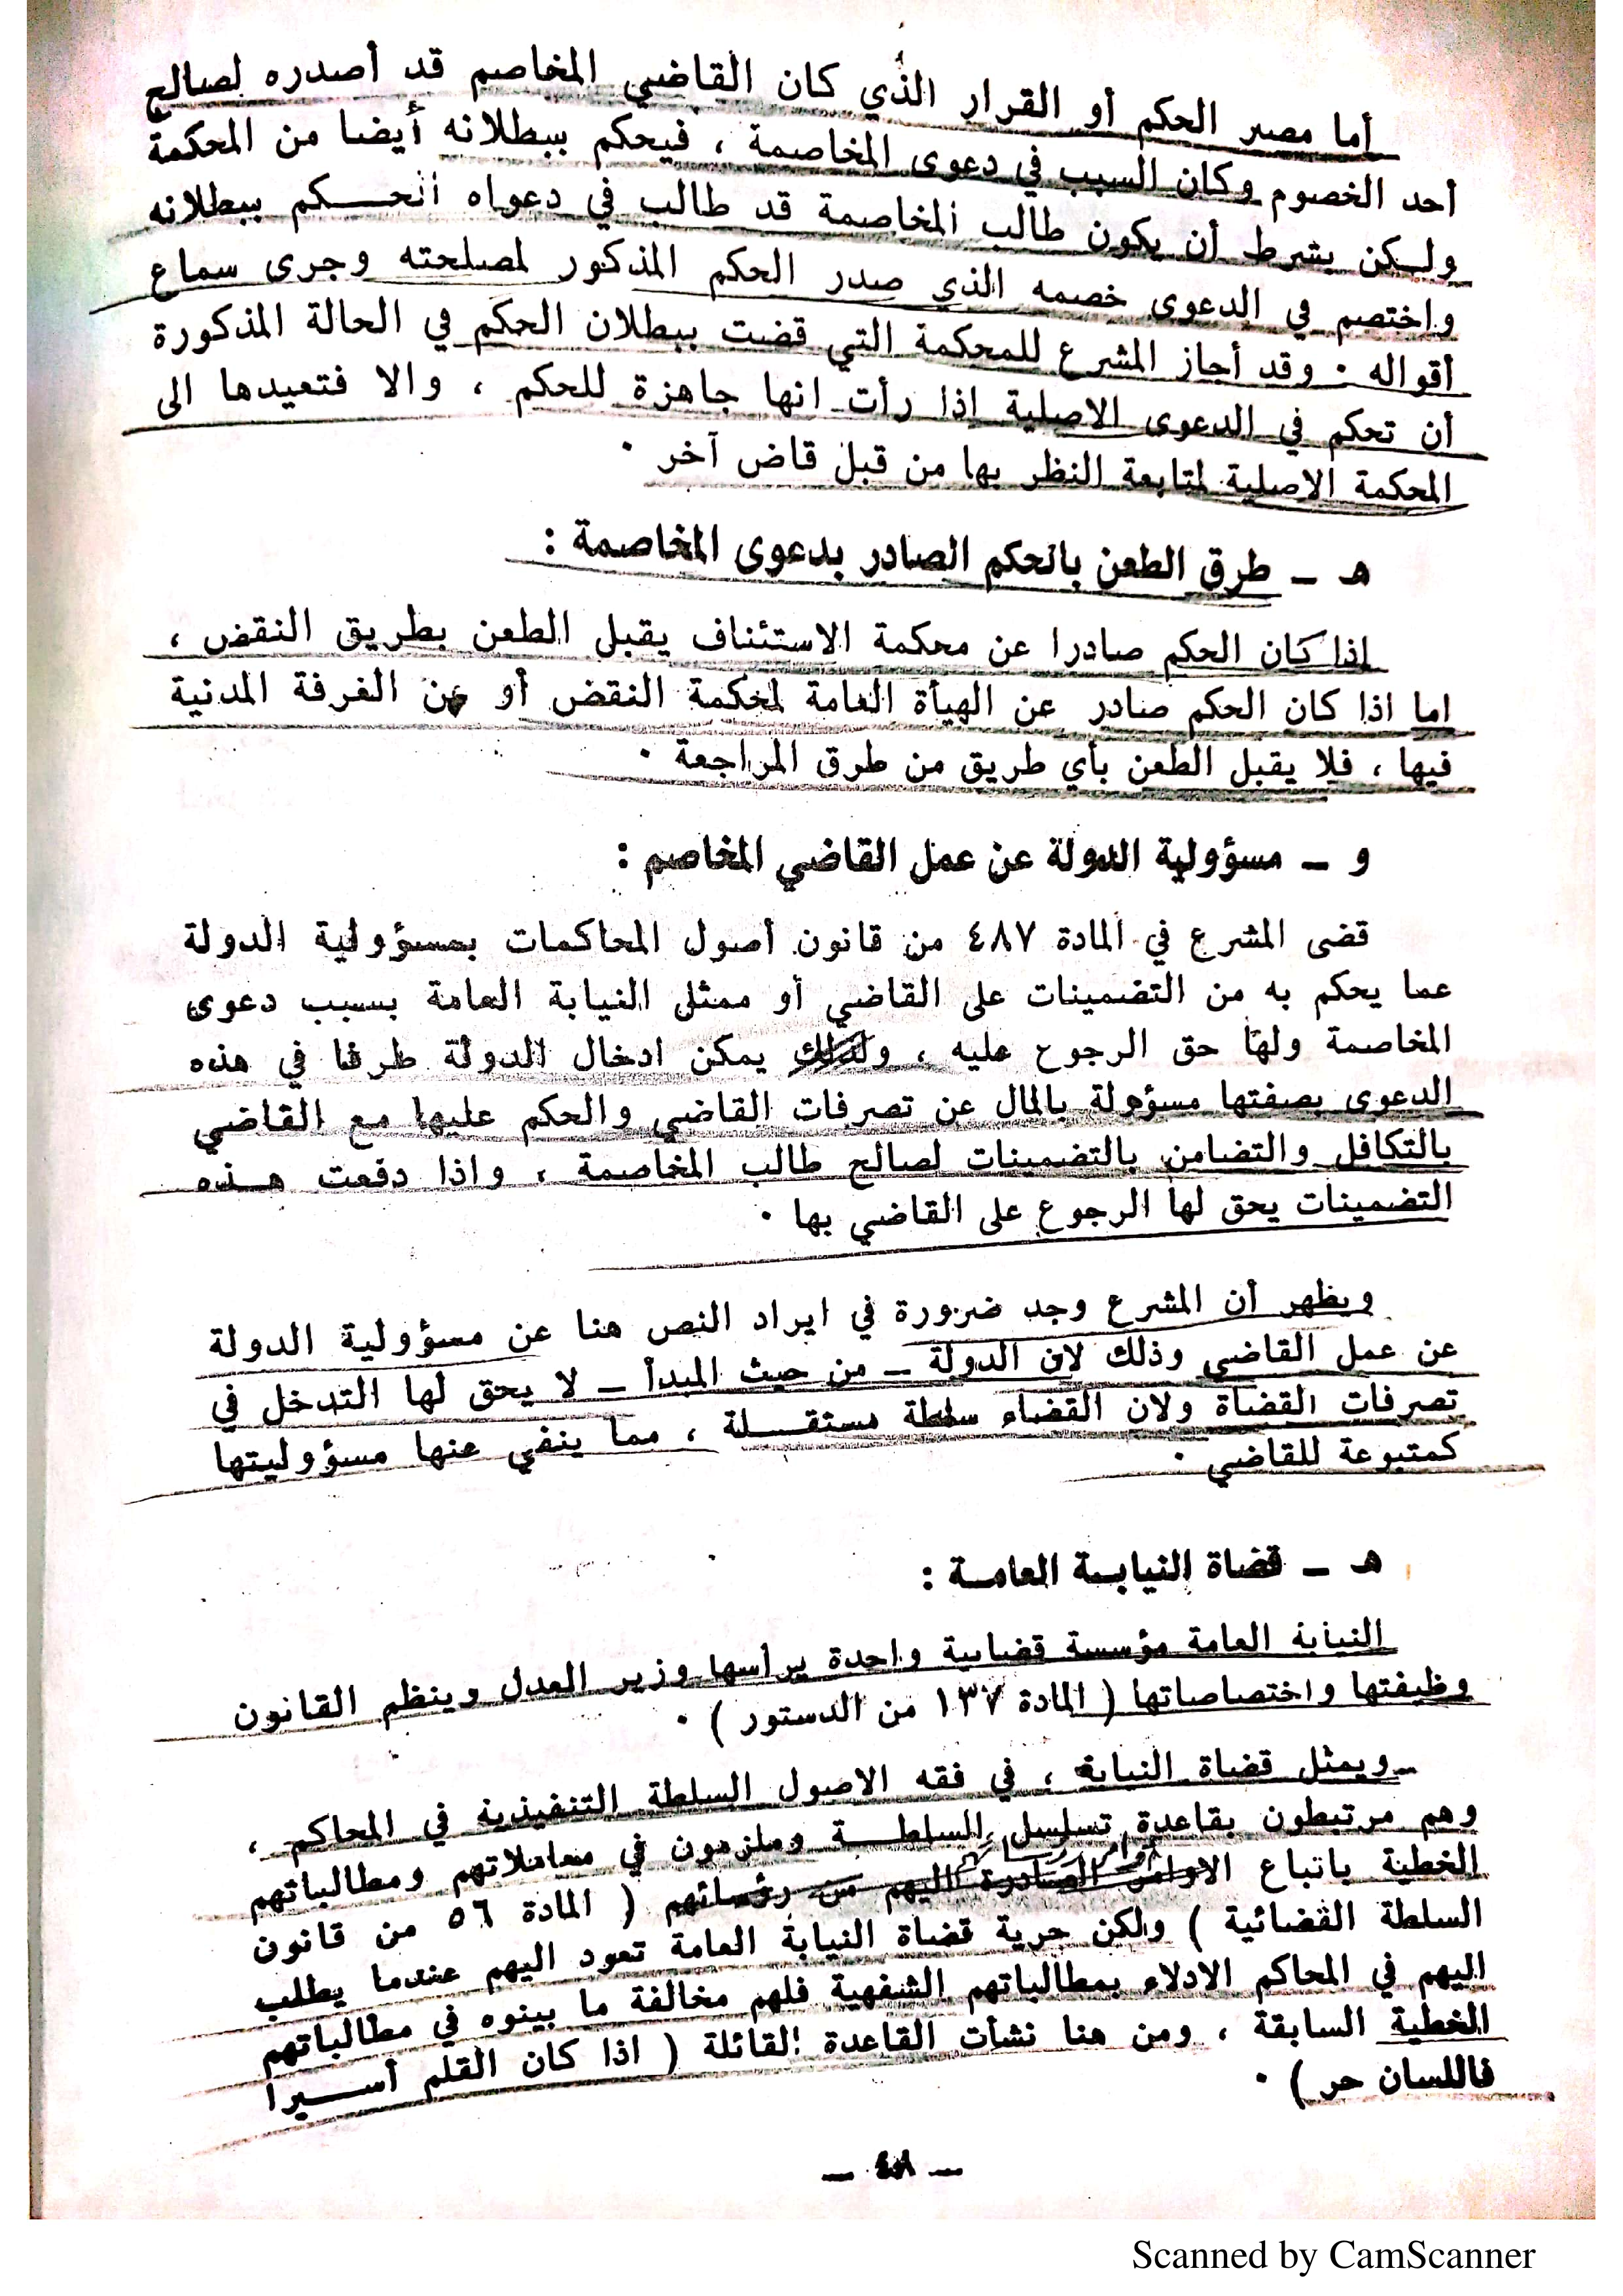 أما مصير الحكم أو القرار الذي كان القاضي المخاصم قد أصدره لصالح
أحد الخصوم وكان السبب في دعوى المخاصمة ، فيحكم ببطلانه أيضا من المحكمة
ولـكن بشرط أن يكون طالب المخاصمة قد طالب في دعواه الحـــكم ببطلانه
واختصم في الدعوى خصمه الذي صدر الحكم المذكور لمصلحته وجرى سماع
أقواله . وقد أجاز المشرع للمحكمة التي قضت ببطلان الحكم في الحالة المذكورة
أن تحكم في الدعوى الاصلية اذا رأت انها جاهزة للحكم ، والا فتعيدها الى
المحكمة الاصلية لمتابعة النظر بها من قبل قاض آخر .
هـ ـ طرق الطعن بالحكم الصادر بدعوى المخاصمة :
اذا كان الحكم صادرا عن محكمة الاستئناف يقبل الطعن بطريق النقض ،
اما اذا كان الحكم صادر عن الهيأة العامة لمحكمة النقض أو عن الغرفة المدنية
فيها ، فلا يقبل الطعن بأي طريق من طرق المراجعة .
و ـ مسؤولية الدولة عن عمل القاضي المخاصم :
قضى المشرع في المادة ٤٨٧ من قانون أصول المحاكمات بمسؤولية الدولة
عما يحكم به من التضمينات على القاضي أو ممثل النيابة العامة بسبب دعوى
المخاصمة ولها حق الرجوع عليه ، ولذلك يمكن ادخال الدولة طرفا في هذه
الدعوى بصفتها مسؤولة بالمال عن تصرفات القاضي والحكم عليها مع القاضي
بالتكافل والتضامن بالتضمينات لصالح طالب المخاصمة ، واذا دفعت هــذه
التضمينات يحق لها الرجوع على القاضي بها .
ويظهر أن المشرع وجد ضرورة في ايراد النص هنا عن مسؤولية الدولة
عن عمل القاضي وذلك لان الدولة ـ من حيث المبدأ ـ لا يحق لها التدخل في
تصرفات القضاة ولان القضاء سلطة مستقــلة ، مما ينفي عنها مسؤوليتها
كمتبوعة للقاضي .
هـ ـ قضاة النيابـة العامـة :
النيابة العامة مؤسسة قضائية واحدة يرأسها وزير العدل وينظم القانون
وظيفتها واختصاصاتها ( المادة ١٣٧ من الدستور ) .
ويمثل قضاة النيابة ، في فقه الاصول السلطة التنفيذية في المحاكم ،
وهم مرتبطون بقاعدة تسلسل السلطــة وملزمون في معاملاتهم ومطالباتهم
الخطية باتباع الاوامر الصادرة اليهم من رؤسائهم ( المادة ٥٦ من قانون
السلطة القضائية ) ولكن حرية قضاة النيابة العامة تعود اليهم عندما يطلب
اليهم في المحاكم الادلاء بمطالباتهم الشفهية فلهم مخالفة ما بينوه في مطالباتهم
الخطية السابقة ، ومن هنا نشأت القاعدة القائلة ( اذا كان القلم أســيرا
فاللسان حر ) .
Scanned by CamScanner